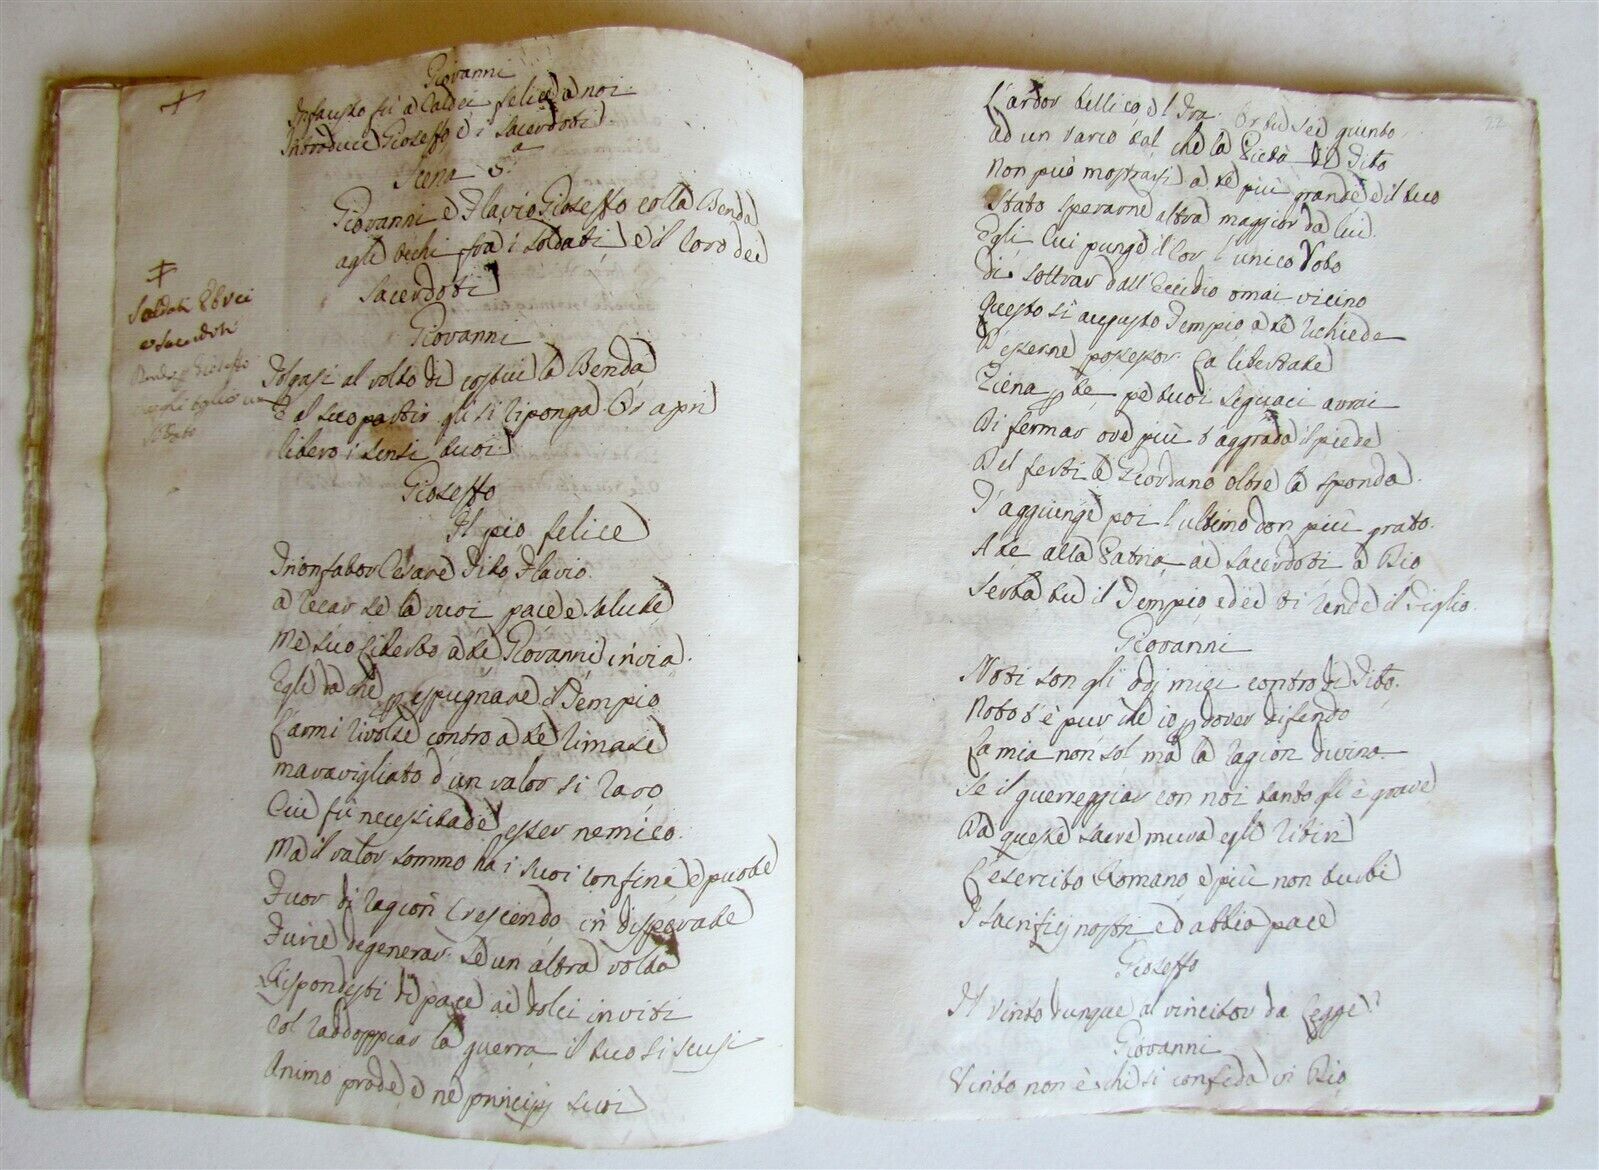 Giovanni
Infausto fù a Caldei felice a noi.
Introduci Gioseffo e i Sacerdoti
Scena 5.a
Giovanni e Flavio Gioseffo colla Benda
agli occhi fra i soldati e il Coro dei
Sacerdoti
Soldati Ebrei
e Sacerdoti
Giovanni
Tolgasi al volto di costui la Benda
E al suo partir gli si riponga. Or apri
libero i sensi tuoi.
Gioseffo
Il pio felice
Trionfator Cesare Tito Flavio.
a recar se la vuoi pace e salute
Me suo liberto a te Giovanni invia.
Egli da che p espugnare il Tempio
L'armi rivolse contro a te rimase
maravigliato d'un valor si raro
Cui fù necessitade esser nemico.
Ma il valor sommo ha i suoi confini e puote
Fuor di ragion crescendo in disperate
Furie degenerar. Se un altra volta
Rispondesti di pace ai dolci inviti
Col raddoppiar la guerra il tuo si scusi
Animo prode e ne principij suoi
22
L'ardor bellico e l'Ira. Or tu sei giunto
ad un varco tal che la Pietà di Tito
Non può mostrarsi a te più grande e il tuo
Stato sperarne altra maggior da lui.
Egli cui punge il cor l'unico Voto
Di sottrar dall'eccidio omai vicino
Questo si augusto Tempio a te richiede
D'esserne possessor. La libertade
Piena p te, pe tuoi seguaci avrai
Di fermar ove più t'aggrada il piede
Del fertile Giordano oltre la sponda.
T'aggiunge poi l'ultimo don più grato.
A te alla Patria ai Sacerdoti a Dio
Serba tu il Tempio, ed ei ti rende il Figlio.
Giovanni
Noti son gli odj miei contro di Tito.
Noto t'è pur che io p dover difendo
La mia non sol ma la ragion divina.
Se il guerreggiar con noi tanto gli è grave
Da queste sacre mura egli ritiri
L'esercito Romano e più non turbi
I sacrifizj nostri ed abbia pace
Gioseffo
Il Vinto dunque al vincitor da legge?
Giovanni
Vinto non è chi si confida in Dio